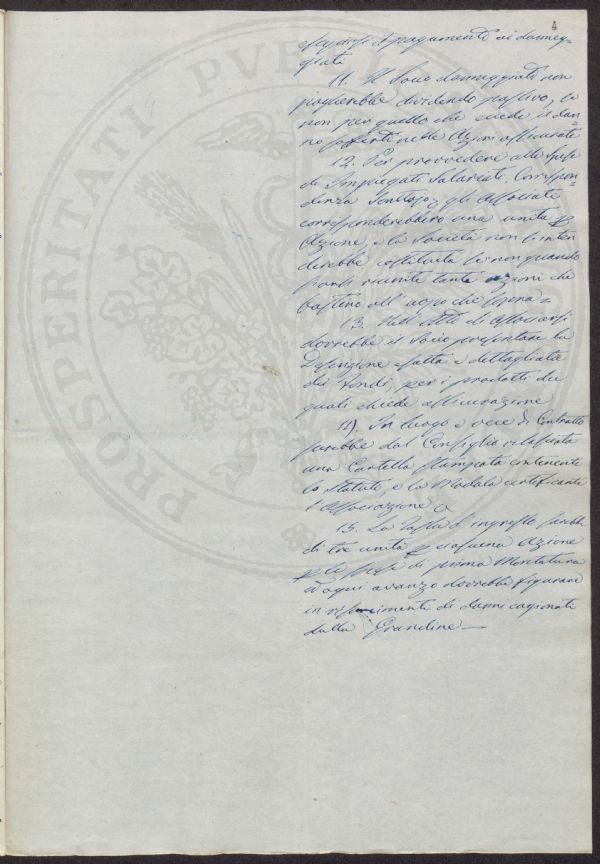 4
eseguirsi il pagamento ai danneg-
giati
11. Il Socio danneggiato non
pagherebbe dividendo passivo, se
non per quello che eccede il dan-
no sofferto nelle Azioni assicurate
12. Per provvedere alle spese
di Impiegati Salariati, Corrispon-
denza gli Associati
corrisponderebbero una unità p
Azione, e la Società non s'inten
derebbe costituita se non quando
siansi riunite tante azioni che
bastino all' uopo che sopra=
13. Nell' Atto di Associarsi
dovrebbe il Socio presentare la
Descrizione esatta e dettagliata
dei Fondi, per i prodotti dei
quali chiede assicurazione
14) In luogo e vece di Contratto
sarebbe dal Consiglio rilasciata
una Cartella stampata contenente
lo Statuto, e la Modula certificante
l'Associazione
15. La Tassa d'ingresso sarebbe
di tre unità p ciascuna Azione
p le spese di prima Montatura
ed ogni avanzo dovrebbe figurare
in di danni cagionati
dalla Grandine—
PROSPERITATI PVBL